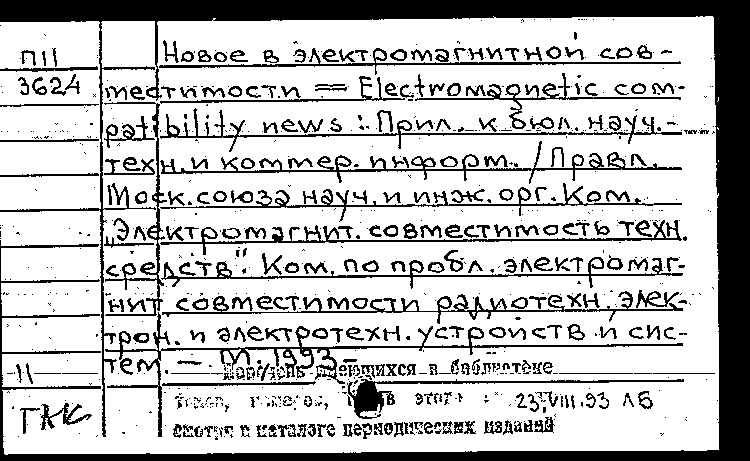 П11 Новое в электромагнитной сов-
3624 местимости == Electromagnetic com-
patibility news : Прил. к бюл. науч.-
техн. и коммер. информ. / Правл.
Моск. союза науч. и инж. орг. Ком.
„Электромагнит. совместимость техн.
средств". Ком. по пробл. электромаг-
нит совместимости радиотехн. элек-
трон. и электротехн. устройств и сис-
тем. — М. 1993 –
11 имеющихся в библиотеке
томов, номеров, этого 23.VIII.93 ЛБ
ГАК смотри в каталоге периодических изданий